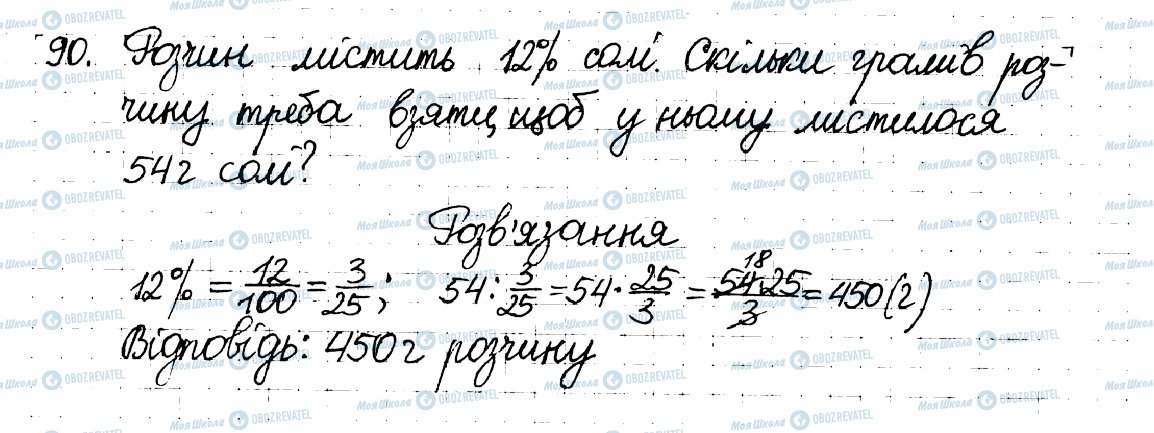 90. Розчин містить 12% солі. Скільки грамів роз-
чину треба взяти, щоб у ньому містилося
54 г солі?
Розв'язання
12% = 12/100 = 3/25; 54 : 3/25 = 54 · 25/3 = 54·25/3 (18) = 450 (г)
Відповідь: 450 г розчину
Моя Школа OBOZREVATEL